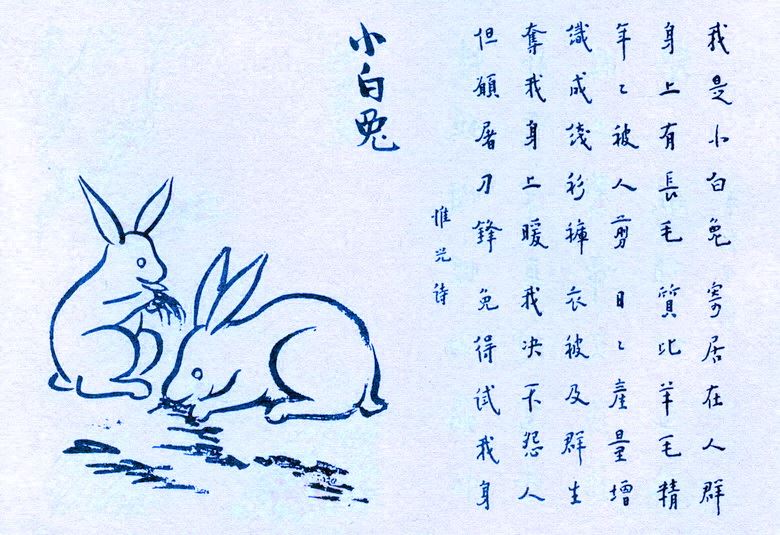 我是小白兔 寄居在人群
身上有長毛 質比羊毛精
年〻被人剪 日〻產量增
織成綫衫褲 衣被及群生
奪我身上暖 我決不怨人
但願屠刀鋒 免得試我身
惟光诗
小白兔